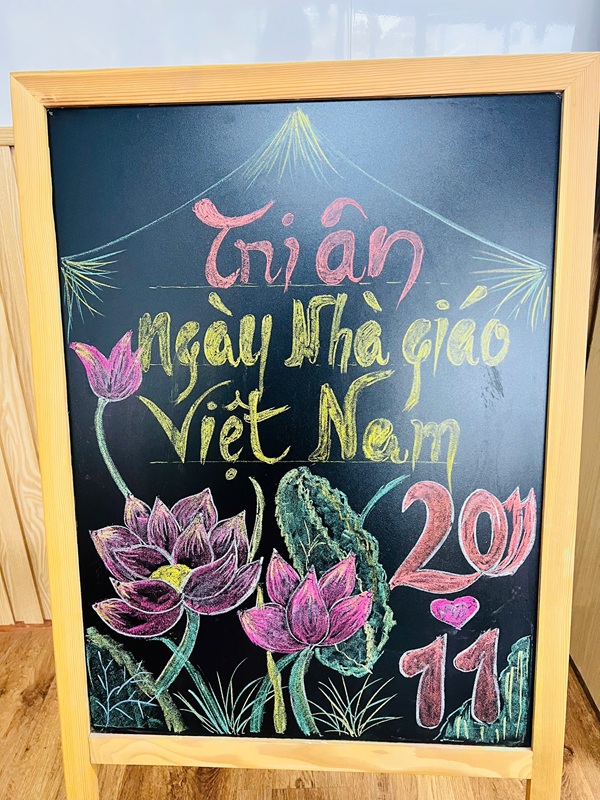 Tri ân
Ngày Nhà giáo
Việt Nam
20
11